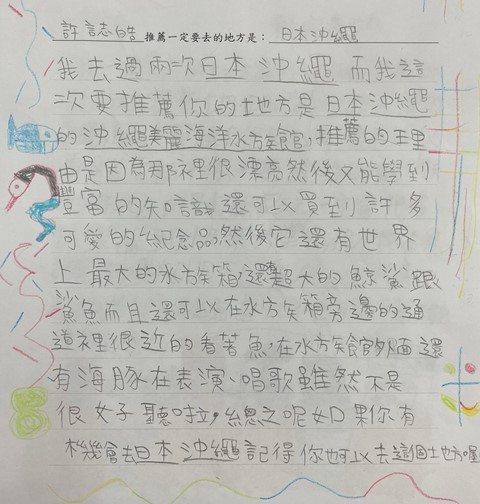 許誌皓 推薦一定要去的地方是：日本沖繩
我去過兩次日本沖繩 而我這
次要推薦你的地方是日本沖繩
的沖繩美麗海洋水族館，推薦的理
由是因為那裡很漂亮然後又能學到
豐富的知識還可以買到許多
可愛的紀念品然後它還有世界
上最大的水族箱還超大的鯨鯊跟
鯊魚而且還可以在水族箱旁邊的通
道裡很近的看著魚，在水族館外面還
有海豚在表演、唱歌雖然不是
很好聽啦，總之呢如果你有
機會去日本沖繩記得你也可以去這個地方喔